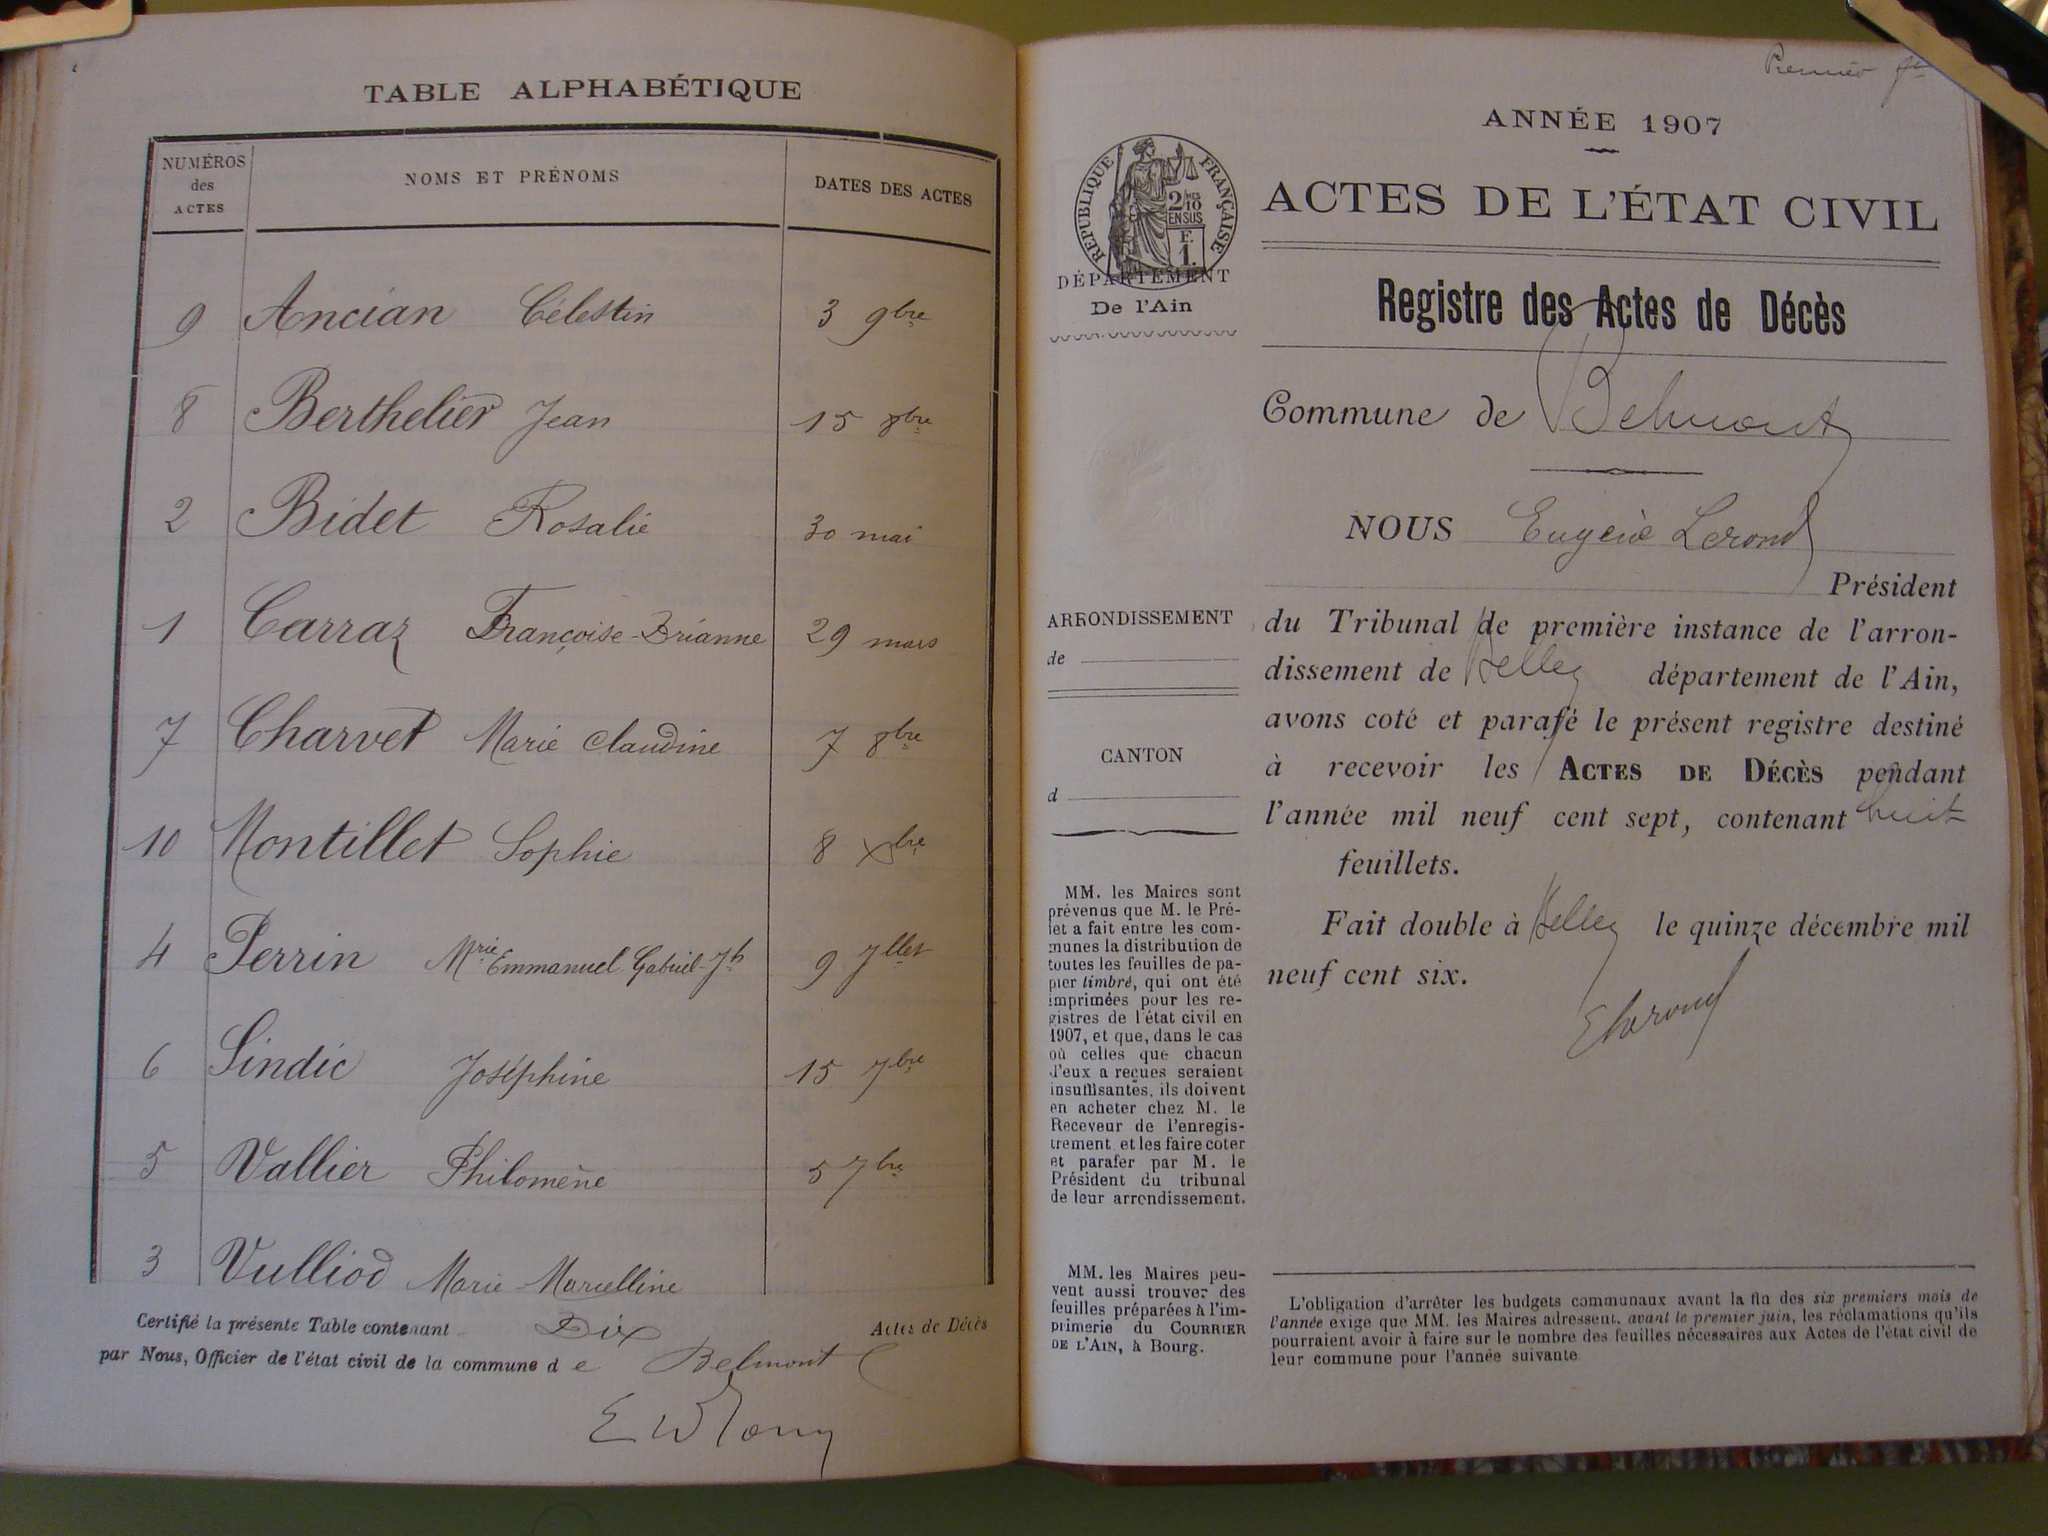 TABLE ALPHABÉTIQUE
NUMÉROS des ACTES NOMS ET PRÉNOMS DATES DES ACTES
9 Ancian Célestin 3 9bre
8 Berthelier Jean 15 8bre
2 Bidet Rosalie 30 mai
1 Carraz Françoise-Drianne 29 mars
7 Charvet Marie Claudine 7 8bre
10 Montillet Sophie 8 Xbre
4 Perrin Mrie Emmanuel Gabriel-Jh 9 Jllet
6 Sindic Joséphine 15 7bre
5 Vallier Philomène 5 7bre
3 Vulliod Marie-Marcelline
Certifié la présente Table contenant Dix Actes de Décès
par Nous, Officier de l'état civil de la commune de Belmont
Premier
ANNÉE 1907
RÉPUBLIQUE FRANÇAISE
2/10 EN SUS
F. 1.
DÉPARTEMENT
De l'Ain
ACTES DE L'ÉTAT CIVIL
Registre des Actes de Décès
Commune de Belmont
NOUS Eugène Lerond
Président
du Tribunal de première instance de l'arron-
dissement de Belley département de l'Ain,
avons coté et parafé le présent registre destiné
à recevoir les ACTES DE DÉCÈS pendant
l'année mil neuf cent sept, contenant huit
feuillets.
Fait double à Belley le quinze décembre mil
neuf cent six.
ELerond
ARRONDISSEMENT
de
CANTON
d
MM. les Maires sont
prévenus que M. le Pré-
fet a fait entre les com-
munes la distribution de
toutes les feuilles de pa-
pier timbré, qui ont été
imprimées pour les re-
gistres de l'état civil en
1907, et que, dans le cas
où celles que chacun
d'eux a reçues seraient
insuffisantes, ils doivent
en acheter chez M. le
Receveur de l'enregis-
trement et les faire coter
et parafer par M. le
Président du tribunal
de leur arrondissement.
MM. les Maires peu-
vent aussi trouver des
feuilles préparées à l'im-
primerie du COURRIER
DE L'AIN, à Bourg.
L'obligation d'arrêter les budgets communaux avant la fin des six premiers mois de
l'année exige que MM. les Maires adressent, avant le premier juin, les réclamations qu'ils
pourraient avoir à faire sur le nombre des feuilles nécessaires aux Actes de l'état civil de
leur commune pour l'année suivante.